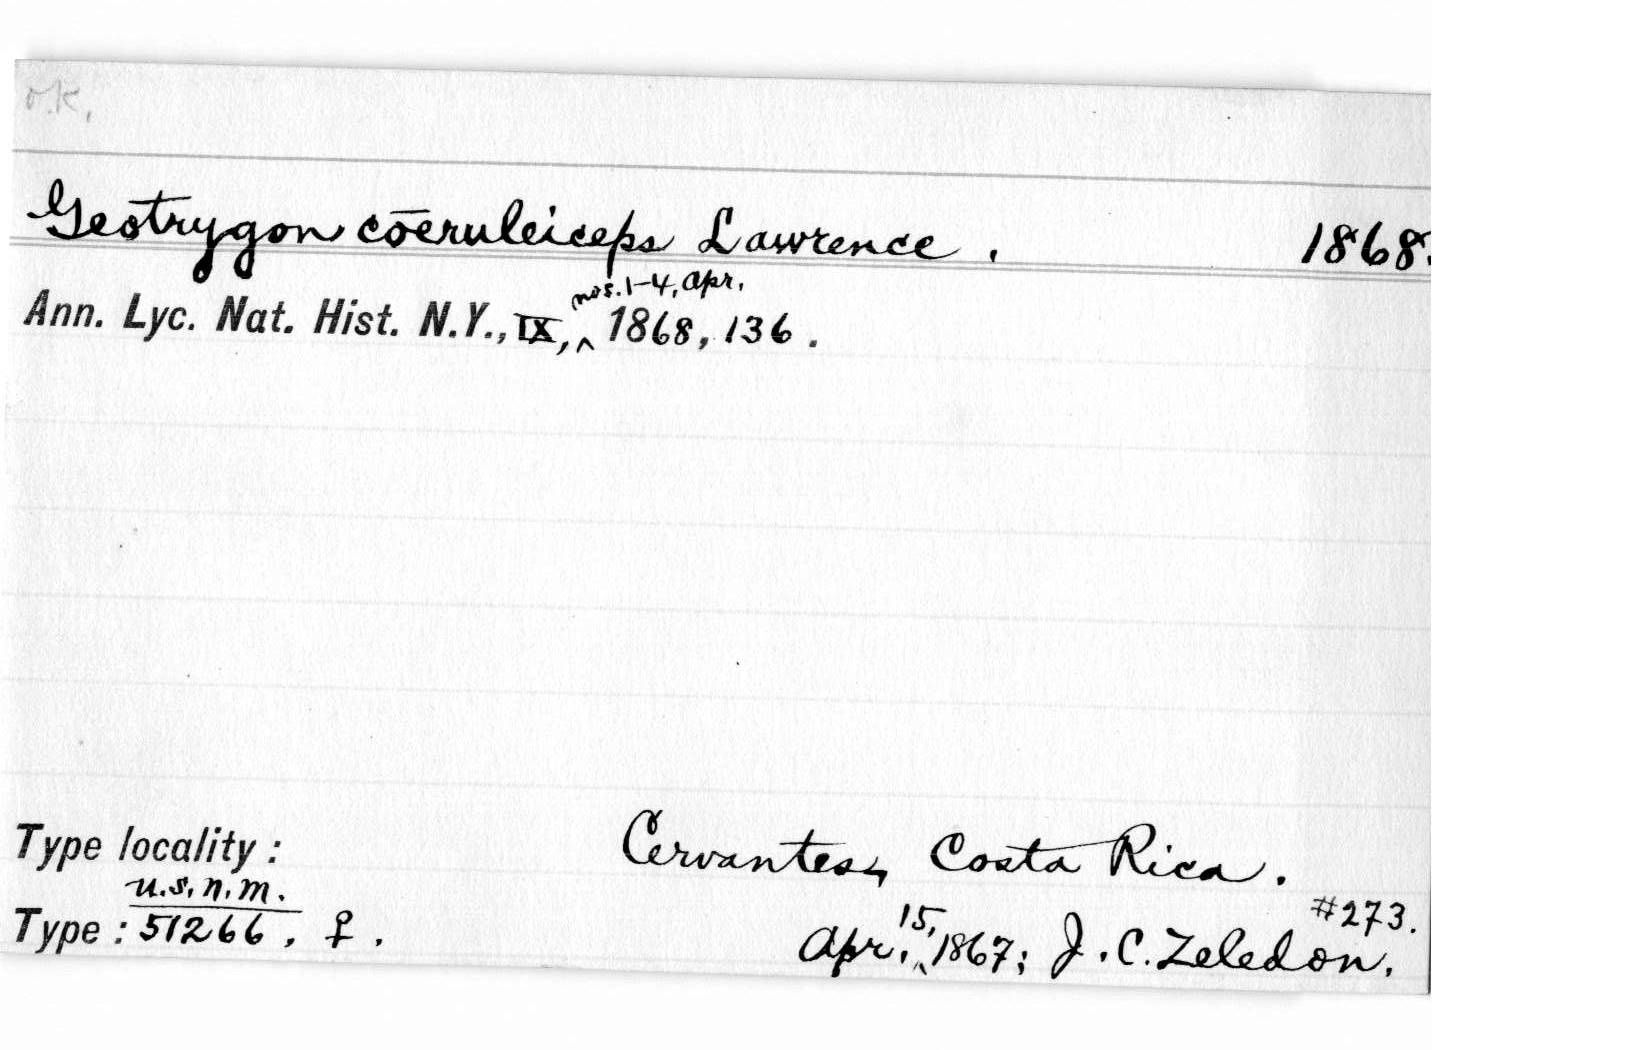 O.K.
Geotrygon cōeruleiceps Lawrence. 1868.
nos. 1-4, Apr.
Ann. Lyc. Nat. Hist. N.Y., IX, ^ 1868, 136.
Type locality: Cervantes, Costa Rica.
U.S.N.M.
#273.
15,
Type: 51266, ♀. Apr. ^ 1867; J. C. Zeledon.